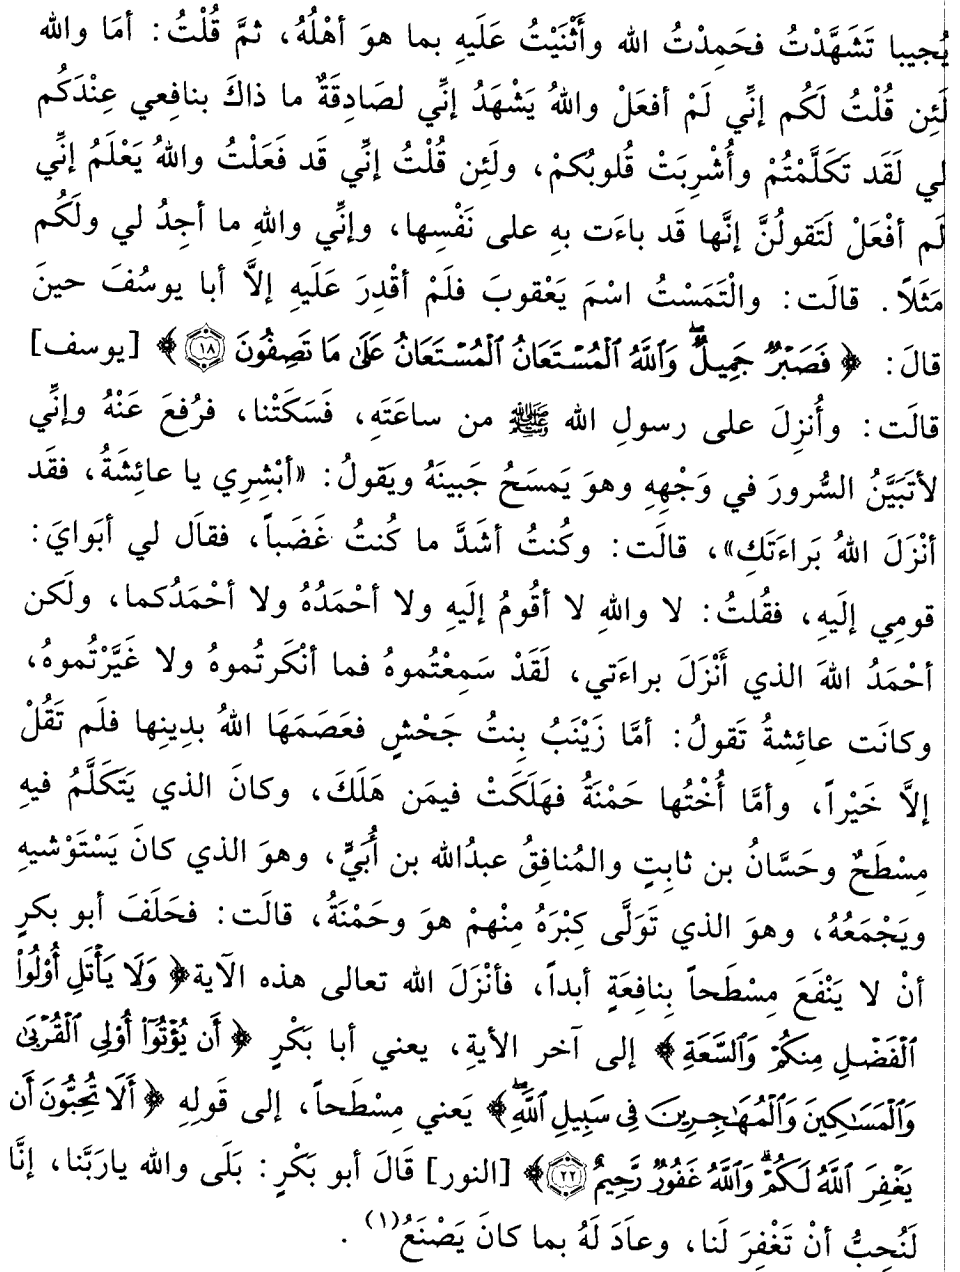 يُجيبا تَشَهَّدْتُ فحَمِدْتُ الله وأَثْنَيْتُ عَلَيهِ بما هوَ أهْلُهُ، ثمَّ قُلْتُ: أمَا والله
لَئِن قُلْتُ لَكُم إنِّي لَمْ أفعَلْ واللهُ يَشْهَدُ إنِّي لصَادِقَةٌ ما ذاكَ بنافِعي عِنْدَكُم
لي لَقَد تَكَلَّمْتُمْ وأُشْرِبَتْ قُلوبُكمْ، ولَئِن قُلْتُ إنِّي قَد فَعَلْتُ واللهُ يَعْلَمُ إنِّي
لَم أفْعَلْ لَتَقولُنَّ إنَّها قَد باءَت بهِ على نَفْسِها، وإنِّي واللهِ ما أجِدُ لي ولَكُم
مَثَلاً. قالَت: والْتَمَسْتُ اسْمَ يَعْقوبَ فلَمْ أقْدِرَ عَلَيهِ إلاَّ أبا يوسُفَ حينَ
قالَ: ﴿ فَصَبْرٌ جَمِيلٌ وَاللَّهُ الْمُسْتَعَانُ الْمُسْتَعَانُ عَلَى مَا تَصِفُونَ ١٨ ﴾ [يوسف]
قالَت: وأُنزِلَ على رسولِ الله ﷺ من ساعَتَهِ، فَسَكَتْنا، فرُفِعَ عَنْهُ وإنِّي
لأتَبَيَّنُ السُّرورَ في وَجْهِهِ وهوَ يَمسَحُ جَبينَهُ ويَقولُ: «أبْشِرِي يا عائِشَةُ، فقَد
أنْزَلَ اللهُ بَراءَتَكِ»، قالَت: وكُنتُ أشَدَّ ما كُنتُ غَضَباً، فقالَ لي أبَوايَ:
قومِي إلَيهِ، فقُلتُ: لا واللهِ لا أقُومُ إلَيهِ ولا أحْمَدُهُ ولا أحْمَدُكما، ولَكن
أحْمَدُ اللهَ الذي أَنْزَلَ براءَتي، لَقَدْ سَمِعْتُموهُ فما أنْكَرتُموهُ ولا غَيَّرْتُموهُ،
وكانَت عائِشةُ تَقولُ: أمَّا زَيْنَبُ بِنتُ جَحْشٍ فعَصَمَهَا اللهُ بدِينِها فلَم تَقُلْ
إلاَّ خَيْراً، وأمَّا أُخْتُها حَمْنَةُ فهَلَكَتْ فيمَن هَلَكَ، وكانَ الذي يَتَكَلَّمُ فيهِ
مِسْطَحٌ وحَسَّانُ بن ثابِتٍ والمُنافِقُ عبدُالله بن أُبَيٍّ، وهوَ الذي كانَ يَسْتَوْشيهِ
ويَجْمَعُهُ، وهوَ الذي تَوَلَّى كِبْرَهُ مِنْهمْ هوَ وحَمْنَةُ، قالَت: فحَلَفَ أبو بكرٍ
أنْ لا يَنْفَعَ مِسْطَحاً بِنافِعَةٍ أبداً، فأنْزَلَ الله تعالى هذه الآية ﴿ وَلَا يَأْتَلِ أُوْلُوا
الْفَضْلِ مِنكُمْ وَالسَّعَةِ ﴾ إلى آخر الأيةِ، يعني أبا بَكْرٍ ﴿ أَن يُؤْتُوا أُوْلِي الْقُرْبَى
وَالْمَسَاكِينَ وَالْمُهَاجِرِينَ فِي سَبِيلِ اللَّهِ ﴾ يَعني مِسْطَحاً، إلى قَولِهِ ﴿ أَلَا تُحِبُّونَ أَن
يَغْفِرَ اللَّهُ لَكُمْ وَاللَّهُ غَفُورٌ رَّحِيمٌ ٢٢ ﴾ [النور] قَالَ أبو بَكْرٍ: بَلَى والله ياربَّنا، إنَّا
لَنُحِبُّ أنْ تَغْفِرَ لَنا، وعاَدَ لَهُ بما كانَ يَصْنَعُ(١).